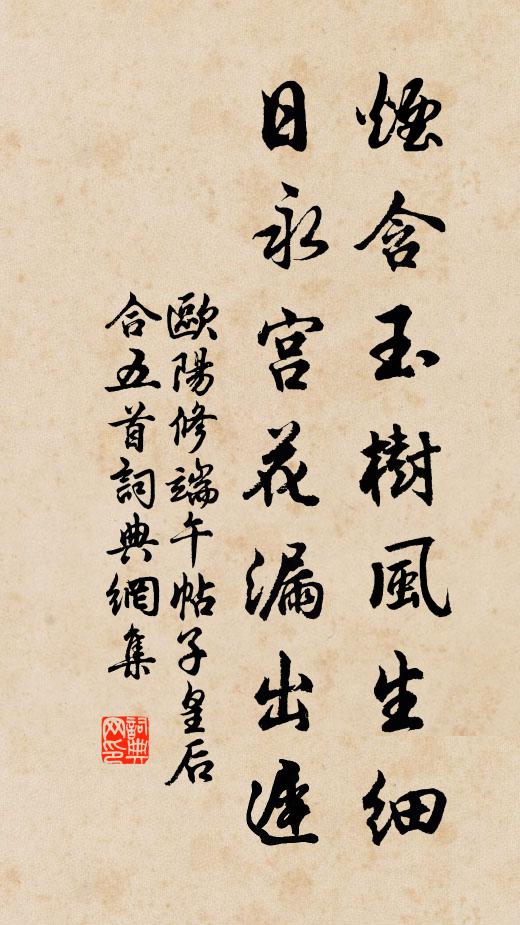 煙含玉樹風生細
日永宮花漏出遲
歐陽修端午帖子皇后
合五首詞典網集
詞典
网印